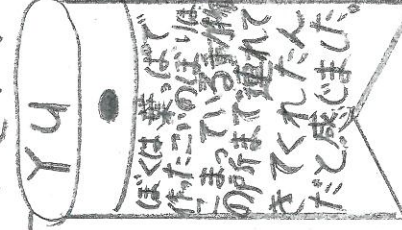 Yu
ぼくは葉っぱで
作ったこいのぼりは
こまっている動物
の所まで連れて
きてくれたん
だと感じました。